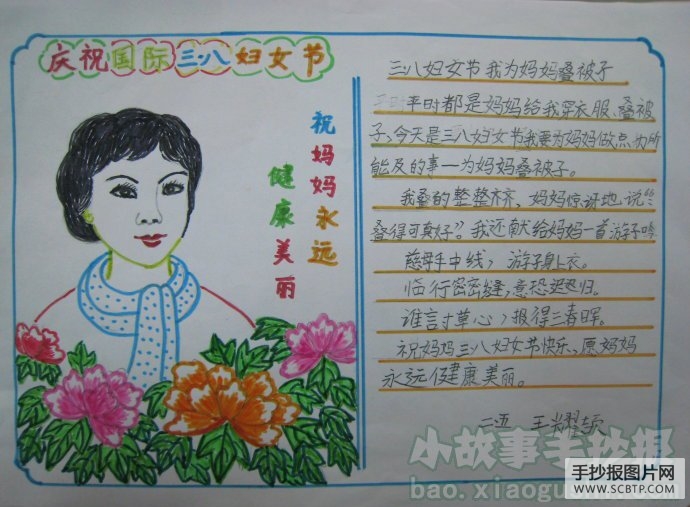 庆祝国际三·八妇女节
祝妈妈永远
健康美丽
三八妇女节我为妈妈叠被子
平时都是妈妈给我穿衣服、叠被
子、今天是三八妇女节我要为妈妈做点力所
能及的事一为妈妈叠被子。
我叠的整整齐齐，妈妈惊讶地说“
叠得可真好”。我还献给妈妈一首游子吟
慈母手中线，游子身上衣。
临行密密缝，意恐迟迟归。
谁言寸草心，报得三春晖。
祝妈妈三八妇女节快乐、愿妈妈
永远健康美丽。
王耀
小故事手抄报
bao.xiaogu
手抄报图片网
www.SCBTP.COM